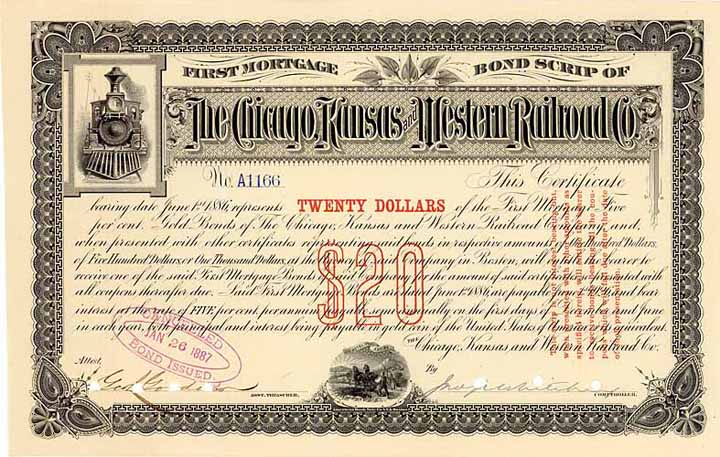 FIRST MORTGAGE BOND SCRIP OF
The Chicago, Kansas and Western Railroad Co.
No. A1166 This Certificate
bearing date June 1st 1886, represents TWENTY DOLLARS of the First Mortgage Five
per cent. Gold Bonds of The Chicago, Kansas and Western Railroad Company and,
when presented with other certificates representing said bonds in respective amounts of
of Five Hundred Dollars, or One Thousand Dollars, at the Company in Boston, will entitle the bearer to
receive one of the said First Mortgage Bonds of said Company for the amount of said certificates presented with
all coupons thereafter due. Said First Mortgage Bonds are dated June 1st 1886, are payable and bear
interest at the rate of FIVE per cent. per annum, semi-annually on the first days of and June
in each year, both principal and interest being payable in gold coin of the United States equivalent.
$20
THE Chicago, Kansas and Western Railroad Co.
CANCELLED
JAN 26 1887
BOND ISSUED.
Attest,
By
ASST. TREASURER.
COMPTROLLER.